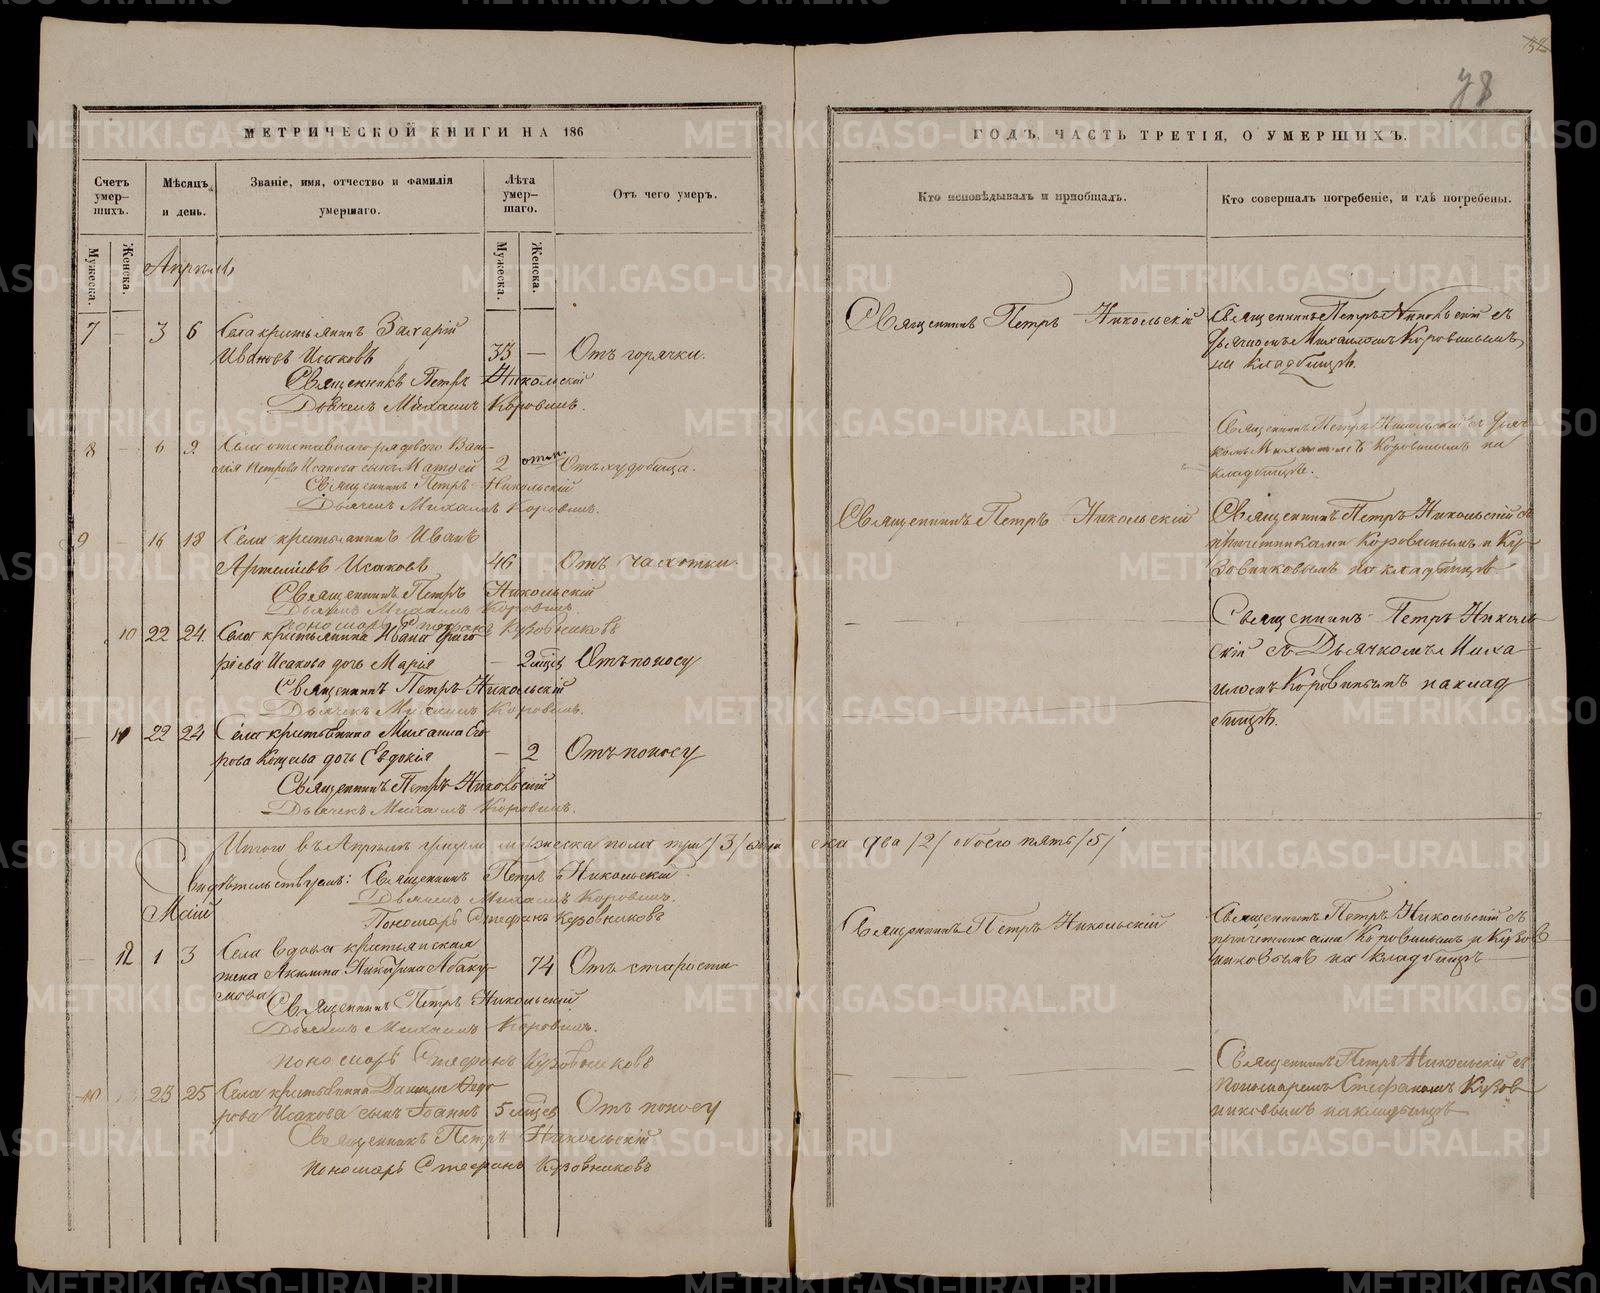 78
МЕТРИЧЕСКОЙ КНИГИ НА 186
ГОДЪ, ЧАСТЬ ТРЕТІЯ, О УМЕРШИХЪ.
Счетъ умер-шихъ.
Мѣсяцъ и день.
Званіе, имя, отчество и фамилія умершаго.
Лѣта умер-шаго.
Отъ чего умеръ.
Кто исповѣдывалъ и пріобщалъ.
Кто совершалъ погребеніе, и гдѣ погребены.
Мужеска.
Женска.
Мужеска.
Женска.
Апрель
7 — 3 6 Села крестьянинъ Захарій
Ивановъ Исаковъ 33 — Отъ горячки.
Священникъ Петръ Никольскій
Дьячекъ Михаилъ Коровинъ.
Священникъ Петръ Никольскій
Священникъ Петръ Никольскій съ
дьячкомъ Михаиломъ Коровинымъ
на кладбищѣ.
8 — 6 9 Села отставнаго рядового Васи-
лія Петрова Исакова сынъ Матѳей 2 Отъ худобища.
Священникъ Петръ Никольскій
Дьячекъ Михаилъ Коровинъ.
Священникъ Петръ Никольскій съ дьяч-
комъ Михаиломъ Коровинымъ на
кладбищѣ.
9 — 16 18 Села крестьянинъ Иванъ
Артемьевъ Исаковъ 46 Отъ чахотки.
Священникъ Петръ Никольскій
Дьячекъ Михаилъ Коровинъ.
Пономарь Стефанъ Кузовниковъ
Священникъ Петръ Никольскій
Священникъ Петръ Никольскій съ
причетниками Коровинымъ и Ку-
зовниковымъ на кладбищѣ
10 22 24 Села крестьянина Ивана Григо
рьева Исакова дочь Марія — 2 мѣсѣ Отъ поносу
Священникъ Петръ Никольскій
Дьячекъ Михаилъ Коровинъ.
Священникъ Петръ Николь
скій съ Дьячкомъ Миха
иломъ Коровинымъ на клад
бищѣ.
— 11 22 24 Села крестьянина Михаила Его
рова дочь Евдокія — 2 Отъ поносу
Священникъ Петръ Никольскій
Дьячекъ Михаилъ Коровинъ.
Итого въ Апрелѣ умерло мужеска пола три /3/ жен
ска два /2/ обоего пять /5/
Свидѣтельствуемъ: Священникъ Петръ Никольскій
Дьячекъ Михаилъ Коровинъ.
Пономарь Стефанъ Кузовниковъ
Май
— 12 1 3 Села вдова крестьянская
жена Акилина Никитина Абаку
мова 74 Отъ старости
Священникъ Петръ Никольскій
Дьячекъ Михаилъ Коровинъ.
Пономарь Стефанъ Кузовниковъ
Священникъ Петръ Никольскій
Священникъ Петръ Никольскій съ
причетниками Коровинымъ и Кузов
никовымъ на кладбищѣ
10 23 25 Села крестьянина Данила Ѳедо
рова Исакова сынъ Іоаннъ 5 мѣсѣ Отъ поносу
Священникъ Петръ Никольскій
Пономарь Стефанъ Кузовниковъ
Священникъ Петръ Никольскій съ
пономаремъ Стефаномъ Кузов
никовымъ на кладбищѣ
METRIKI.GASO-URAL.RU